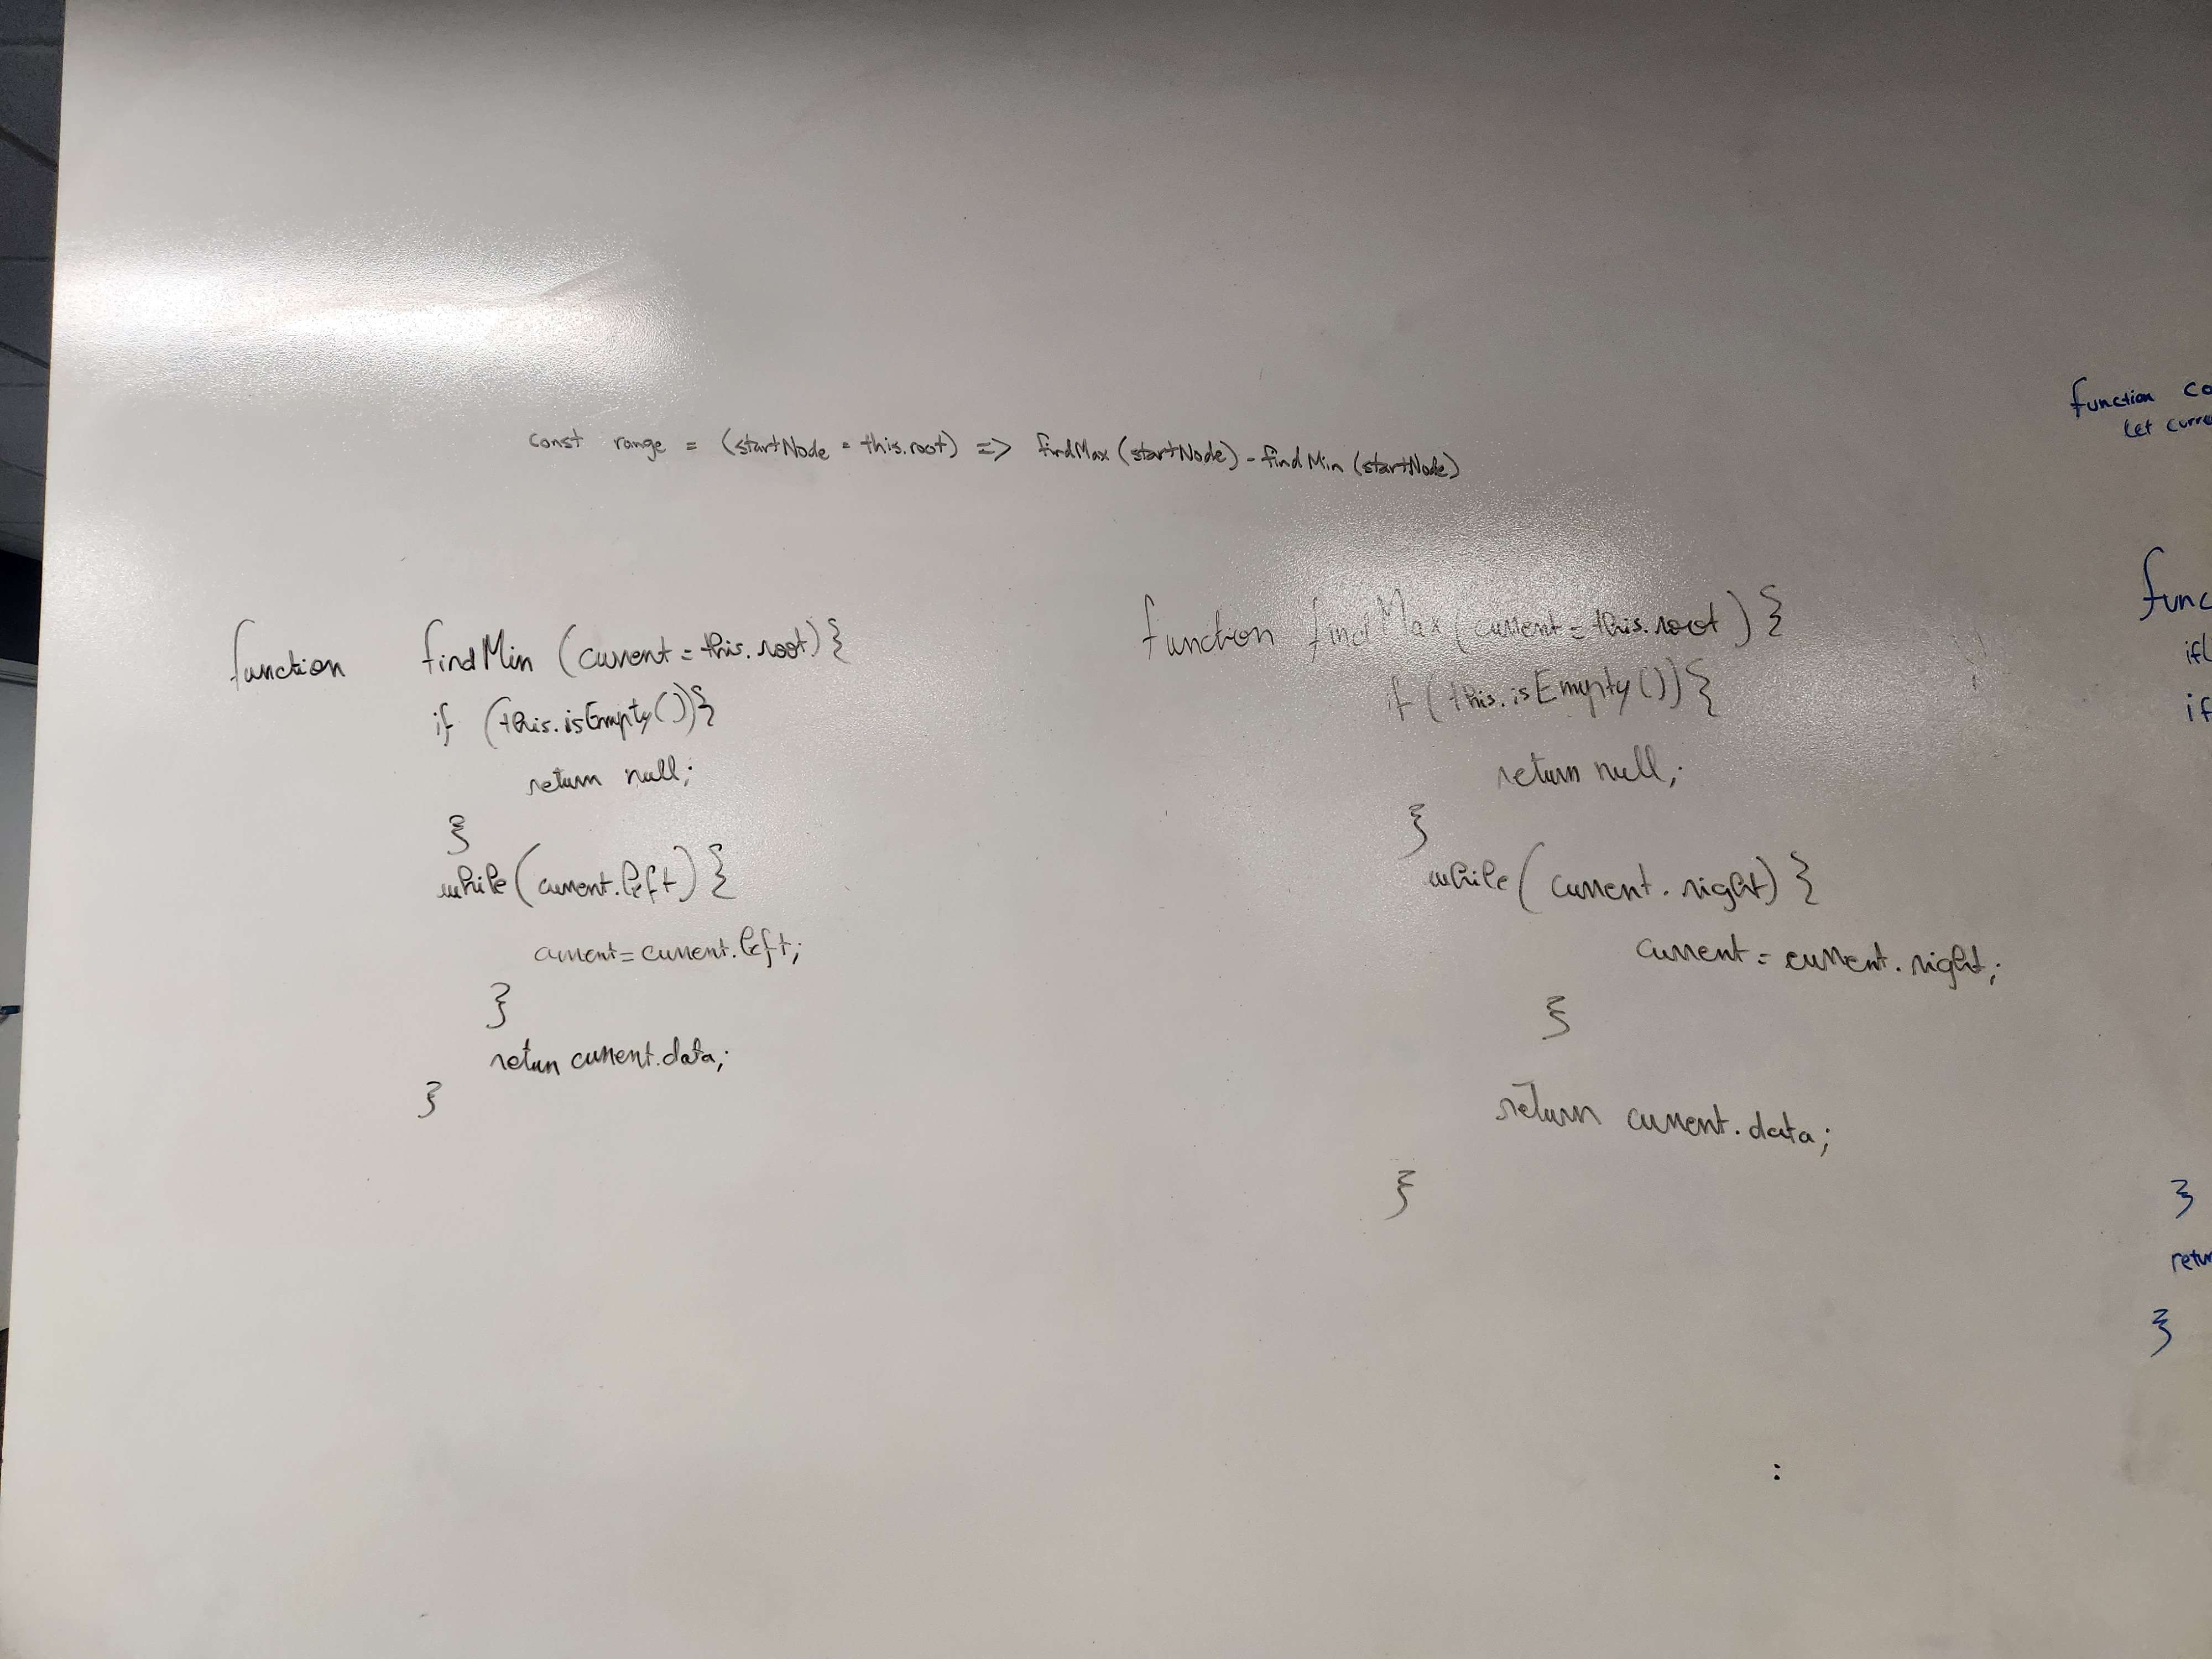 const range = (startNode = this.root) => findMax(startNode) - findMin(startNode)
function findMin (current = this.root) {
if (this.isEmpty()) {
return null;
}
while (current.left) {
current = current.left;
}
return current.data;
}
function findMax (current = this.root) {
if (this.isEmpty()) {
return null;
}
while (current.right) {
current = current.right;
}
return current.data;
}
:
function co
let curre
func
if(
if
}
retur
}